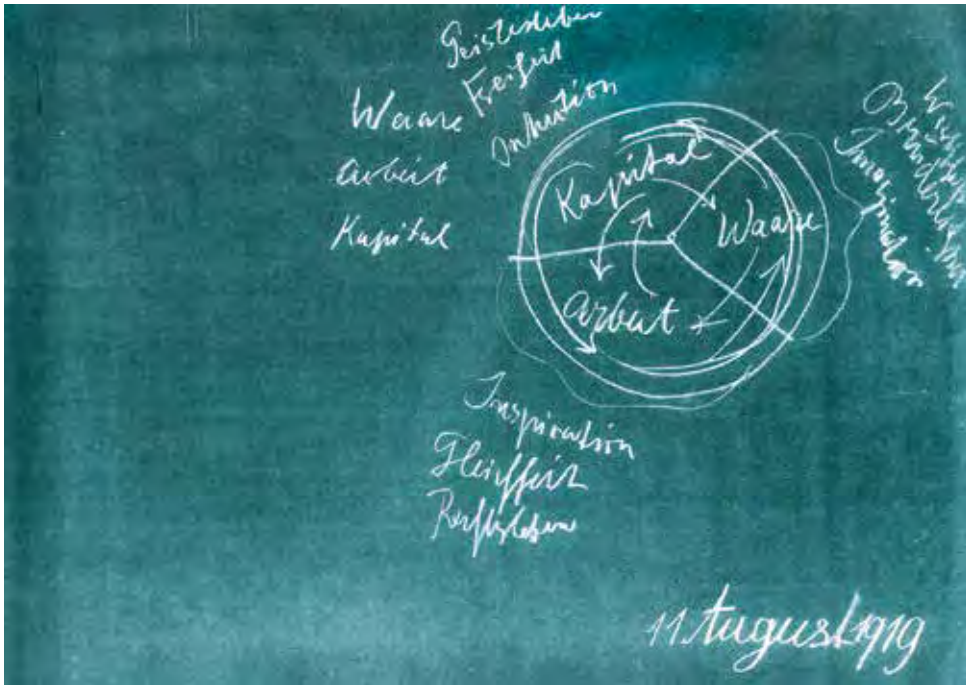 Geistesleben
Freiheit
Intuition
Waare
Arbeit
Kapital
Kapital
Waare
Arbeit
Imagination
Inspiration
Gleichheit
Rechtsleben
11. August 1919